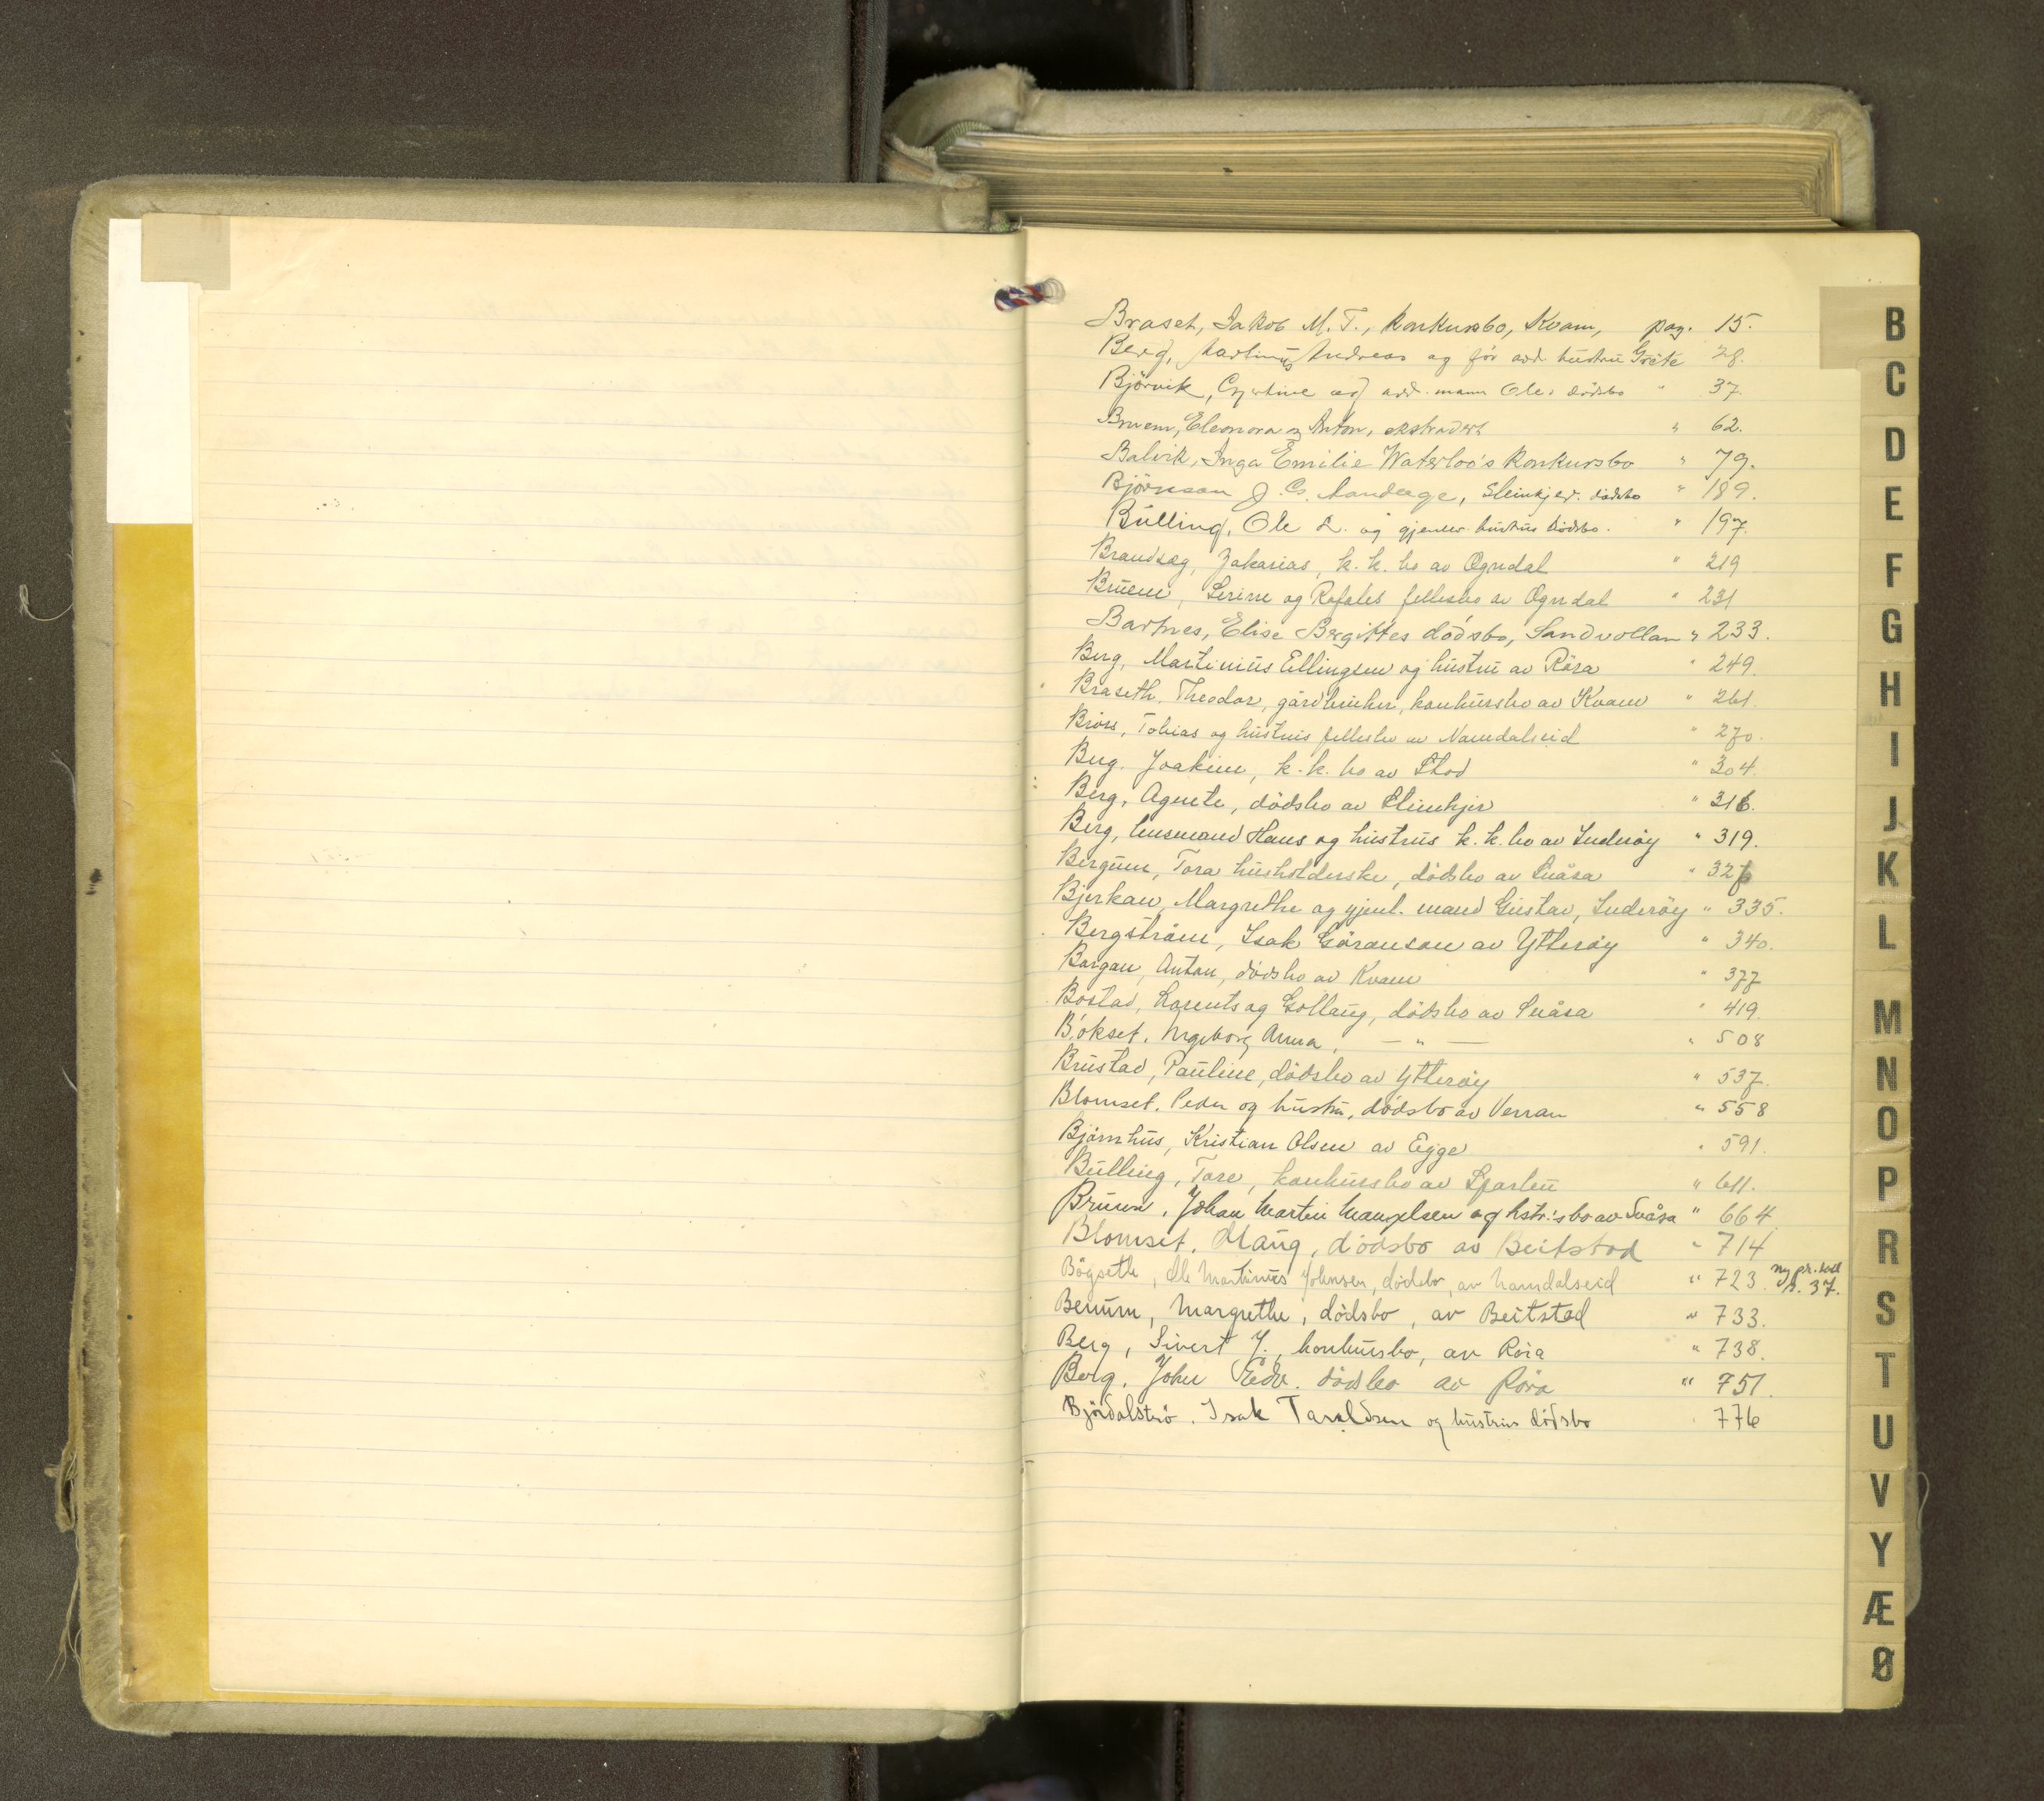 Braset, Jakob M. T., konkursbo, Kvam, pag. 15.
Berg, Martinus Andreas og før avd. hustru Grete 28.
Björvik, og avd. mann Ole, dödsbo " 37.
Bruem, Eleonora og Anton, ekstradert " 62.
Balvik, Inga Emilie Waterloo's konkursbo " 79.
Björnson J. C. Steinkjer. dödsbo " 189.
Bülling, Ole L. og gjenlev. hustrus dödsbo. " 197.
Brandsæg, Zakarias, k. k. bo av Ogndal " 219
Bruem, Serine og Rafales fellesbo av Ogndal " 231
Bartnes, Elise Bergittes dödsbo, Sandvollan " 233.
Berg, Martinius Ellingsen og hustru av Röra " 249.
Braseth, Theodor, gårdbruker, konkursbo av Kvam " 261.
Tobias og hustrus fellesbo av Namdalseid " 270.
Berg. Joakim, k. k. bo av Stod " 304.
Berg, Agnete, dödsbo av Steinkjer " 316.
Berg, husmand Hans og hustrus k. k. bo av Inderöy " 319.
Bergum, Tora husholderske, dödsbo av Snåsa " 327
Bjerkan, Margrethe og gjenl. mand Gustav, Inderöy " 335.
Bergström, Isak Göranson av Ytteröy " 340.
Bargan, Anton, dödsbo av Kvam " 377
Bostad, Lorents og Gollaug, dödsbo av Snåsa " 419.
Bökset. Ingeborg Anna, — " — " 508
Brustad, Pauline, dödsbo av Ytteröy " 537.
Blomset. Peder og hustru, dödsbo av Verran " 558
Björnhus, Kristian Olsen av Egge " 591.
Bülling, Tore, konkursbo av Sparbu " 611.
Bruun, Johan Martin og hstr's bo av Snåsa " 664
Blomset, Olaug, dödsbo av Beitstad " 714
Bögseth, Ole Martinus Johnsen, dödsbo, av Namdalseid " 723. ny pr.koll p. 37.
Benum, Margrethe, dödsbo, av Beitstad " 733.
Berg, Sivert J., konkursbo, av Röra " 738.
Berg. John Edv. dödsbo av Röra " 751.
Isak Taraldsen og hustrus dödsbo 776
B
C
D
E
F
G
H
I
J
K
L
M
N
O
P
R
S
T
U
V
Y
Æ
Ø